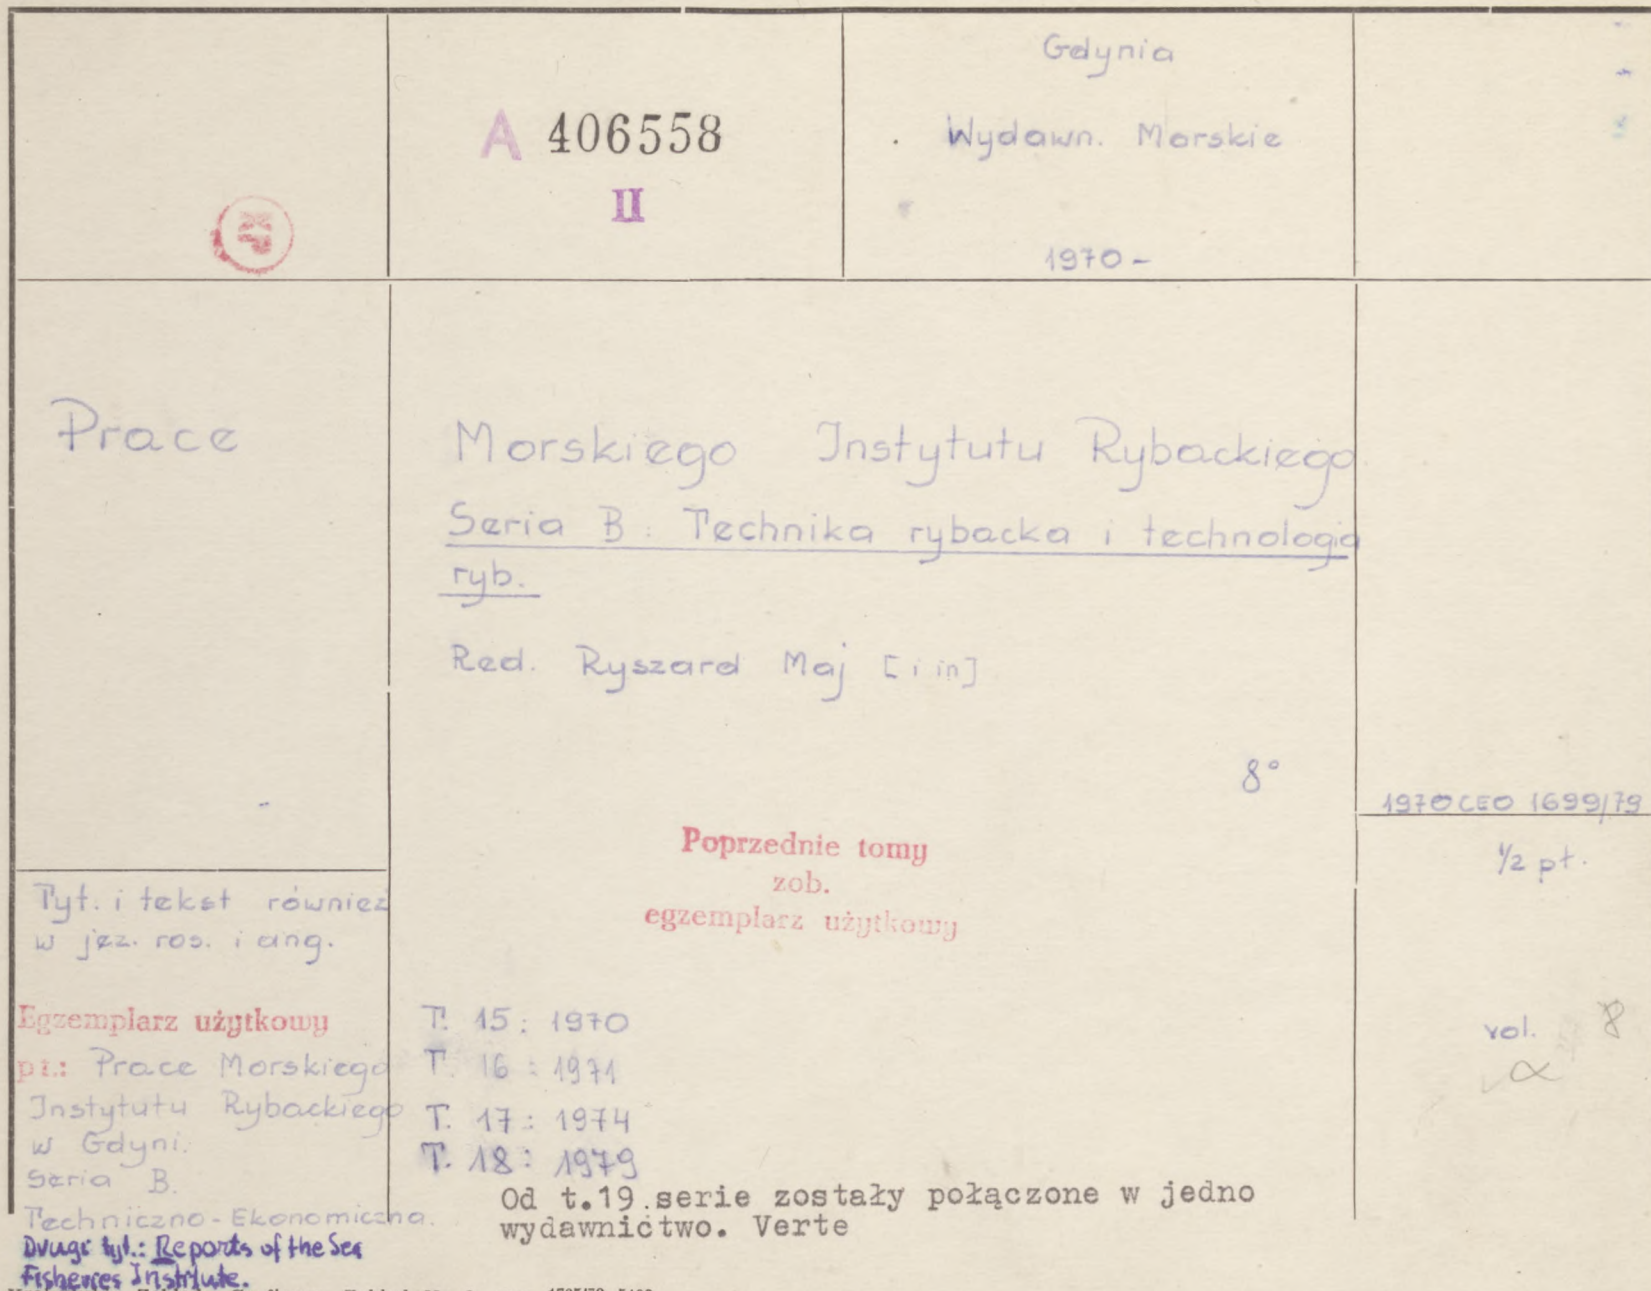 Gdynia
A 406558
Wydawn. Morskie
II
1970-
Prace
Morskiego Instytutu Rybackiego.
Seria B: Technika rybacka i technologia
ryb.
Red. Ryszard Maj [i in]
8°
1970 CEO 1699/79
Poprzednie tomy
zob.
egzemplarz użytkowy
1/2 pł.
Tyt. i tekst również
w jęz. ros. i ang.
Egzemplarz użytkowy
pt.: Prace Morskiego
Instytutu Rybackiego
w Gdyni.
Seria B.
Techniczno-Ekonomiczna.
Drugi tyt.: Reports of the Sea
Fisheries Institute.
T. 15: 1970
T. 16: 1971
T. 17: 1974
T. 18: 1979
Od t.19 serie zostały połączone w jedno
wydawnictwo. Verte
vol. 8